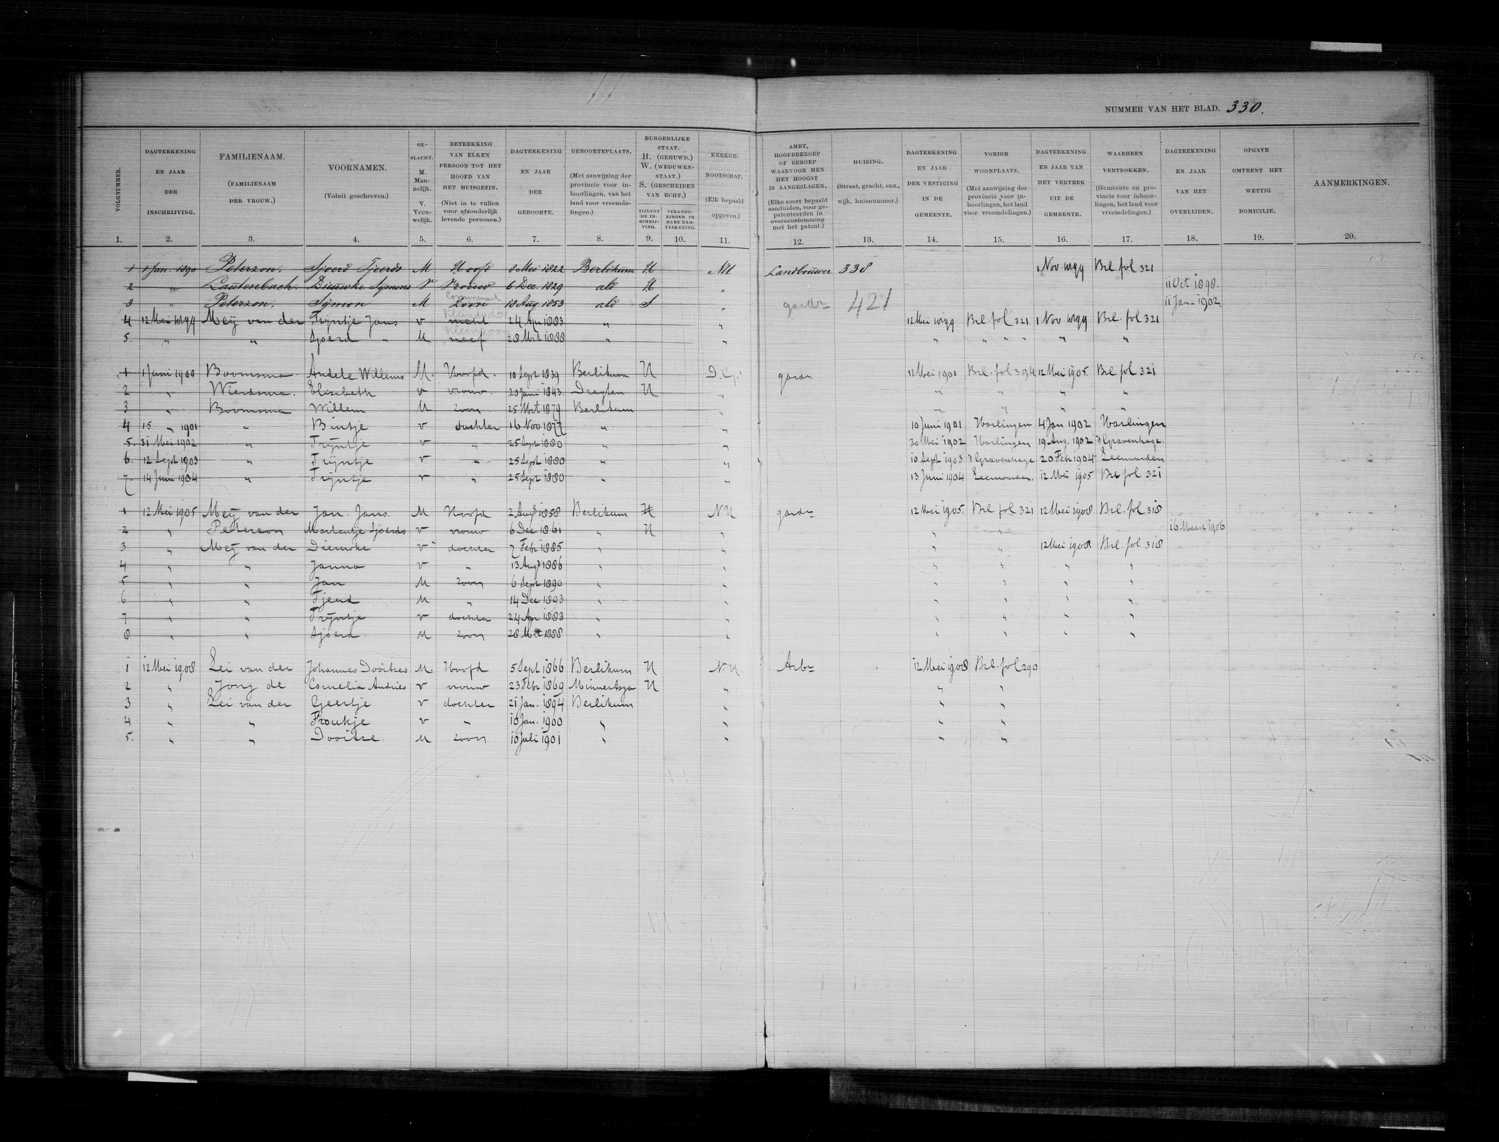 NUMMER VAN HET BLAD. 330.
VOLGNUMMER. DAGTEEKENING EN JAAR DER INSCHRIJVING. FAMILIENAAM. (FAMILIENAAM DER VROUW.) VOORNAMEN. (Voluit geschreven.) GESLACHT. M. Mannelijk. V. Vrouwelijk. BETREKKING VAN ELKEN PERSOON TOT HET HOOFD VAN HET HUISGEZIN. (Niet in te vullen voor afzonderlijk levende personen.) DAGTEEKENING EN JAAR DER GEBOORTE. GEBOORTEPLAATS. (Met aanwijzing der provincie voor inboorlingen, van het land voor vreemdelingen.) BURGERLIJKE STAAT. H. (GEHUWD.) W. (WEDUWENSTAAT.) S. (GESCHEIDEN VAN ECHT.) KERKGENOOTSCHAP. (Elk bepaald opgeven.) AMBT, HOOFDBEROEP OF BEROEP WAARVOOR MEN HET HOOGST IS AANGESLAGEN. HUIZING. (Straat, gracht, enz., wijk, huisnummer.) DAGTEEKENING EN JAAR DER VESTIGING IN DE GEMEENTE. VORIGE WOONPLAATS. (Met aanwijzing der provincie voor inboorlingen, het land voor vreemdelingen.) DAGTEEKENING EN JAAR VAN HET VERTREK UIT DE GEMEENTE. WAARHEEN VERTROKKEN. (Gemeente en provincie voor inboorlingen, het land voor vreemdelingen.) DAGTEEKENING EN JAAR VAN HET OVERLIJDEN. OPGAVE OMTRENT HET WETTIG DOMICILIE. AANMERKINGEN.
1. 2. 3. 4. 5. 6. 7. 8. 9. 10. 11. 12. 13. 14. 15. 16. 17. 18. 19. 20.
1 1 Jan. 1890 Peterson. Sjoerd Tjeerds M Hoofd 8 Mei 1822 Berlikum H NH Landbouwer 338 1 Nov 1899 Brl fol 321
2 " Lautenbach. Dieuwke Symens V Vrouw 6 Dec. 1829 als H " 11 Oct 1898.
3 " Peterson. Symon M Zoon 18 Aug 1853 als S " gardr 421 11 Jan. 1902
4 12 Mei 1899 Meij van der Trijntje Jans v 24 Apr 1883 " " 12 Mei 1899 Brl fol 321 1 Nov 1899 Brl fol 321
5 " " Sjoerd " M neef 28 Mrt 1888 " " " " " " " "
1 1 Juni 1900 Boomsma Andele Willems M. Hoofd. 10 Sept 1839 Berlikum H D.G. gardr 12 Mei 1901 Brl. fol 394 12 Mei 1905 Brl fol 321
2 " Wiersma. Elisabeth v vrouw. 20 Juni 1843 Dragten H " " " " "
3 " Boomsma Willem M zoon 25 Mrt 1879 Berlikum " " " " "
4 15 " 1901 " Bintje v dochter 16 Nov 1877 " " 10 Juni 1901 Harlingen 4 Jan 1902 Harlingen
5. 31 Mei 1902 " Trijntje v " 25 Sept 1880 " " 30 Mei 1902 Harlingen 19 Aug. 1902 's Gravenhage.
6 12 Sept 1903 " Trijntje v " 25 Sept 1880 " " 10 Sept 1903 's Gravenhage 20 Feb 1904 Leeuwarden
7 14 Juni 1904 " Trijntje v " 25 Sept 1880 " " 13 Juni 1904 Leeuwarden. 12 Mei 1905 Brl fol 321
1 12 Mei 1905 Meij van der Jan Jans M Hoofd 2 Aug 1858 Berlikum H NH gardr 12 Mei 1905 Brl fol 321 12 Mei 1908 Brl. fol 318
2 " Petterson Sjoerds v vrouw 6 Dec 1861 " H " " " 16 Maart 1906
3 " Meij van der Dieuwke v dochter 7 Febr 1885 " " " " 12 Mei 1908 Brl fol 318
4 " " Janna v " 13 Aug 1886 " " " " " "
5 " " Jan M zoon 6 Sept 1890 " " " " " "
6 " " Tjeerd M " 14 Dec 1893 " " " " " "
7 " " Trijntje v dochter 24 Apr 1883 " " " " " "
8 " " Sjoerd M zoon 28 Mrt 1888 " " " " " "
1 12 Mei 1908 Lei van der Johannes Dooitzes M Hoofd 5 Sept 1866 Berlikum H NH Arbr 12 Mei 1908 Brl. fol 290
2 " Jong de Cornelia Andries v vrouw 23 Febr 1869 Minnertsga H " " "
3 " Lei van der Geertje v dochter 21 Jan. 1894 Berlikum " " "
4 " " Froukje v " 18 Jan. 1900 " " " "
5. " " Dooitze M zoon 18 Juli 1901 " " " "